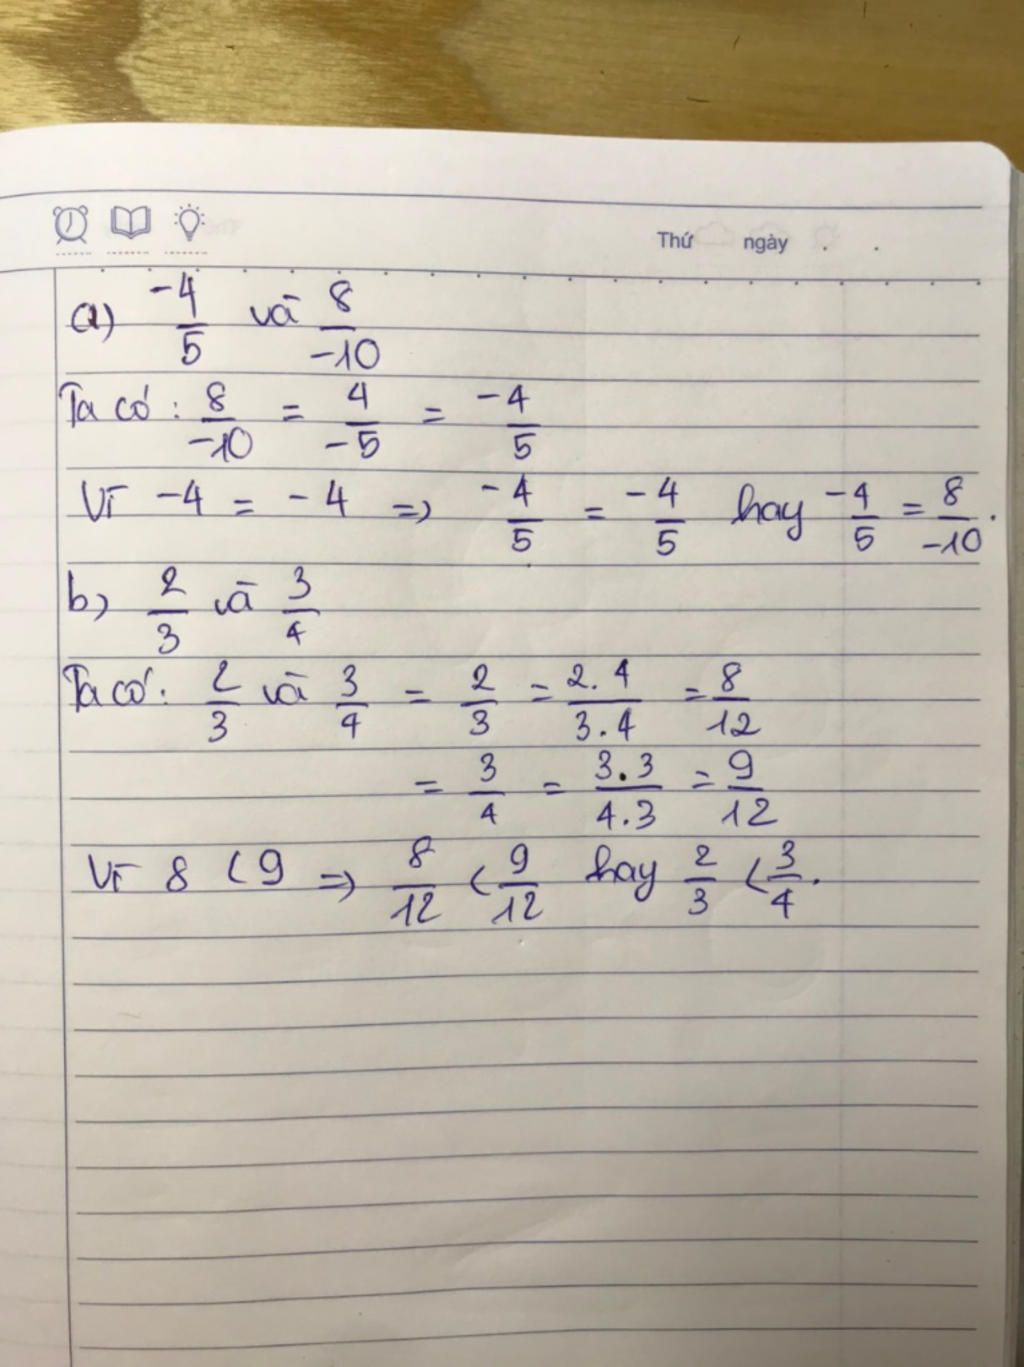 Thứ ngày . .
a) -4/5 và 8/-10
Ta có : 8/-10 = 4/-5 = -4/5
Vì -4 = -4 => -4/5 = -4/5 hay -4/5 = 8/-10.
b) 2/3 và 3/4
Ta có : 2/3 và 3/4 = 2/3 = 2.4/3.4 = 8/12
= 3/4 = 3.3/4.3 = 9/12
Vì 8 < 9 => 8/12 < 9/12 hay 2/3 < 3/4.